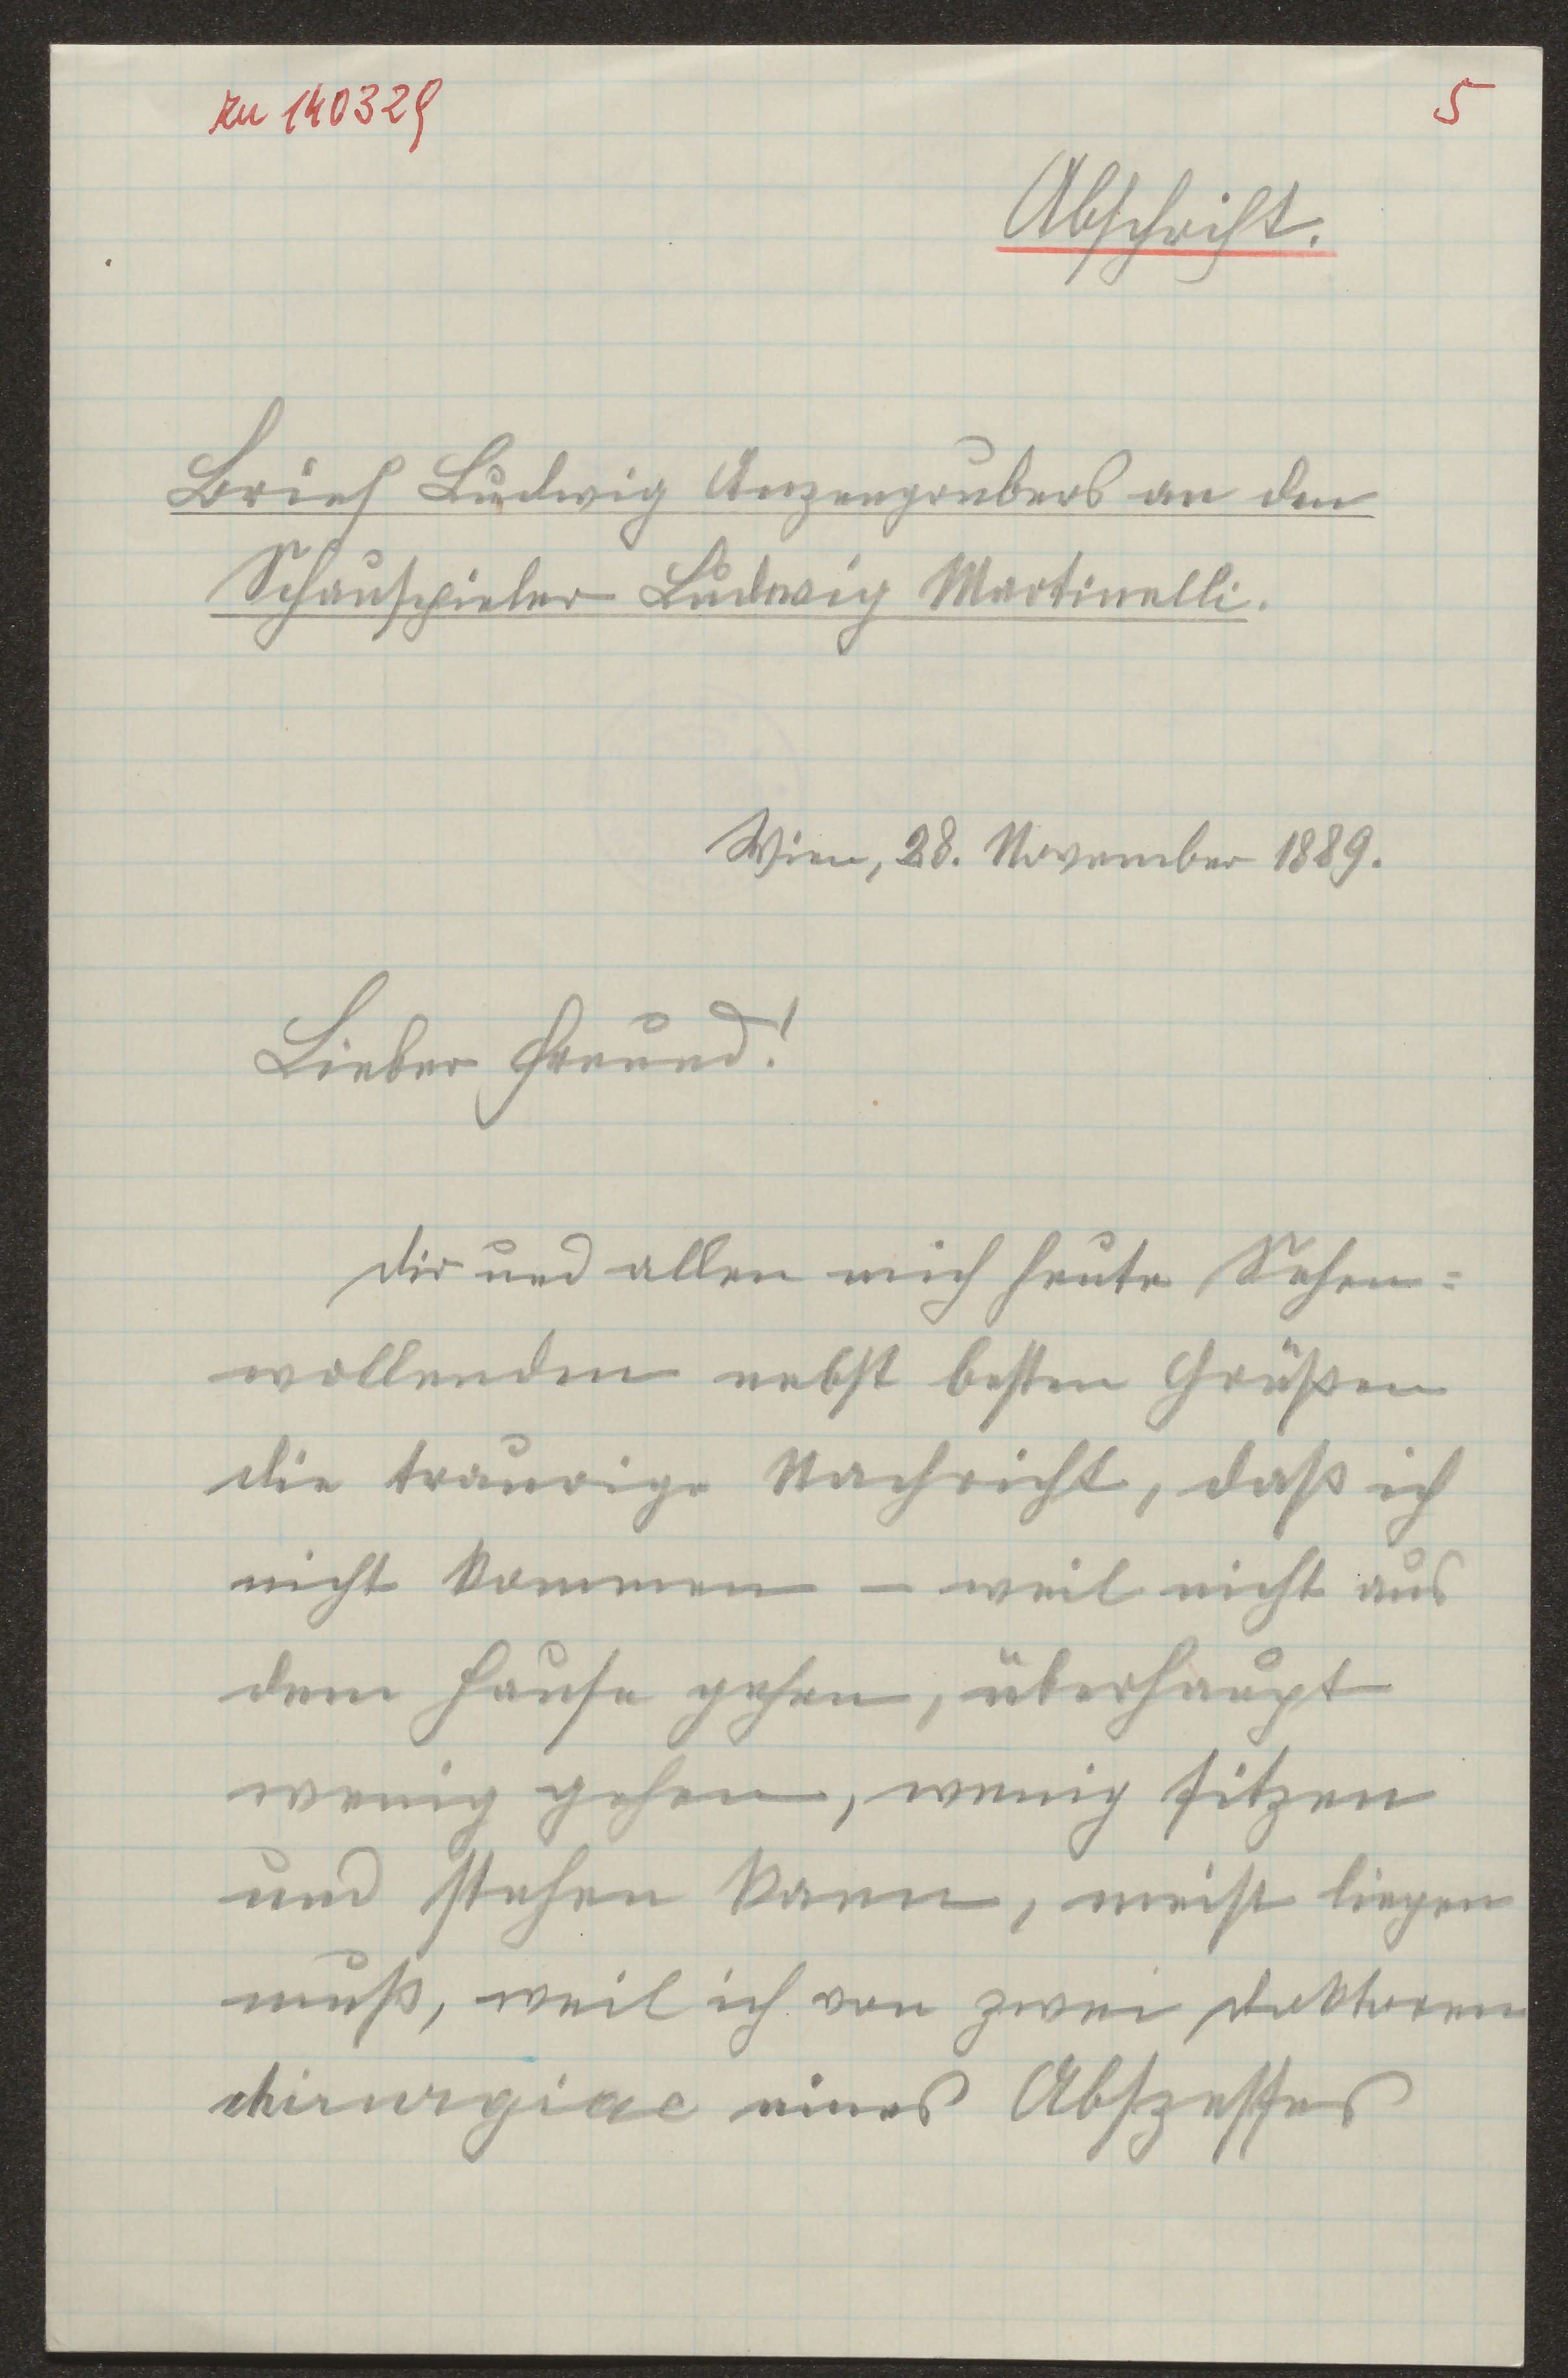 zu 140329
5
Abschrift.
Brief Ludwig Anzengrubers an den
Schauspieler Ludwig Martinelli.
Wien, 28. November 1889.
Lieber Freund!
Dir und allen mich heute Sehen=
wollenden nebst besten Grüßen
die traurige Nachricht, daß ich
nicht kommen – weil nicht aus
dem Hause gehen, überhaupt
wenig gehen, wenig sitzen
und stehen kann, meist liegen
muß, weil ich von zwei Doktoren
chirurgiae eines Abszesses